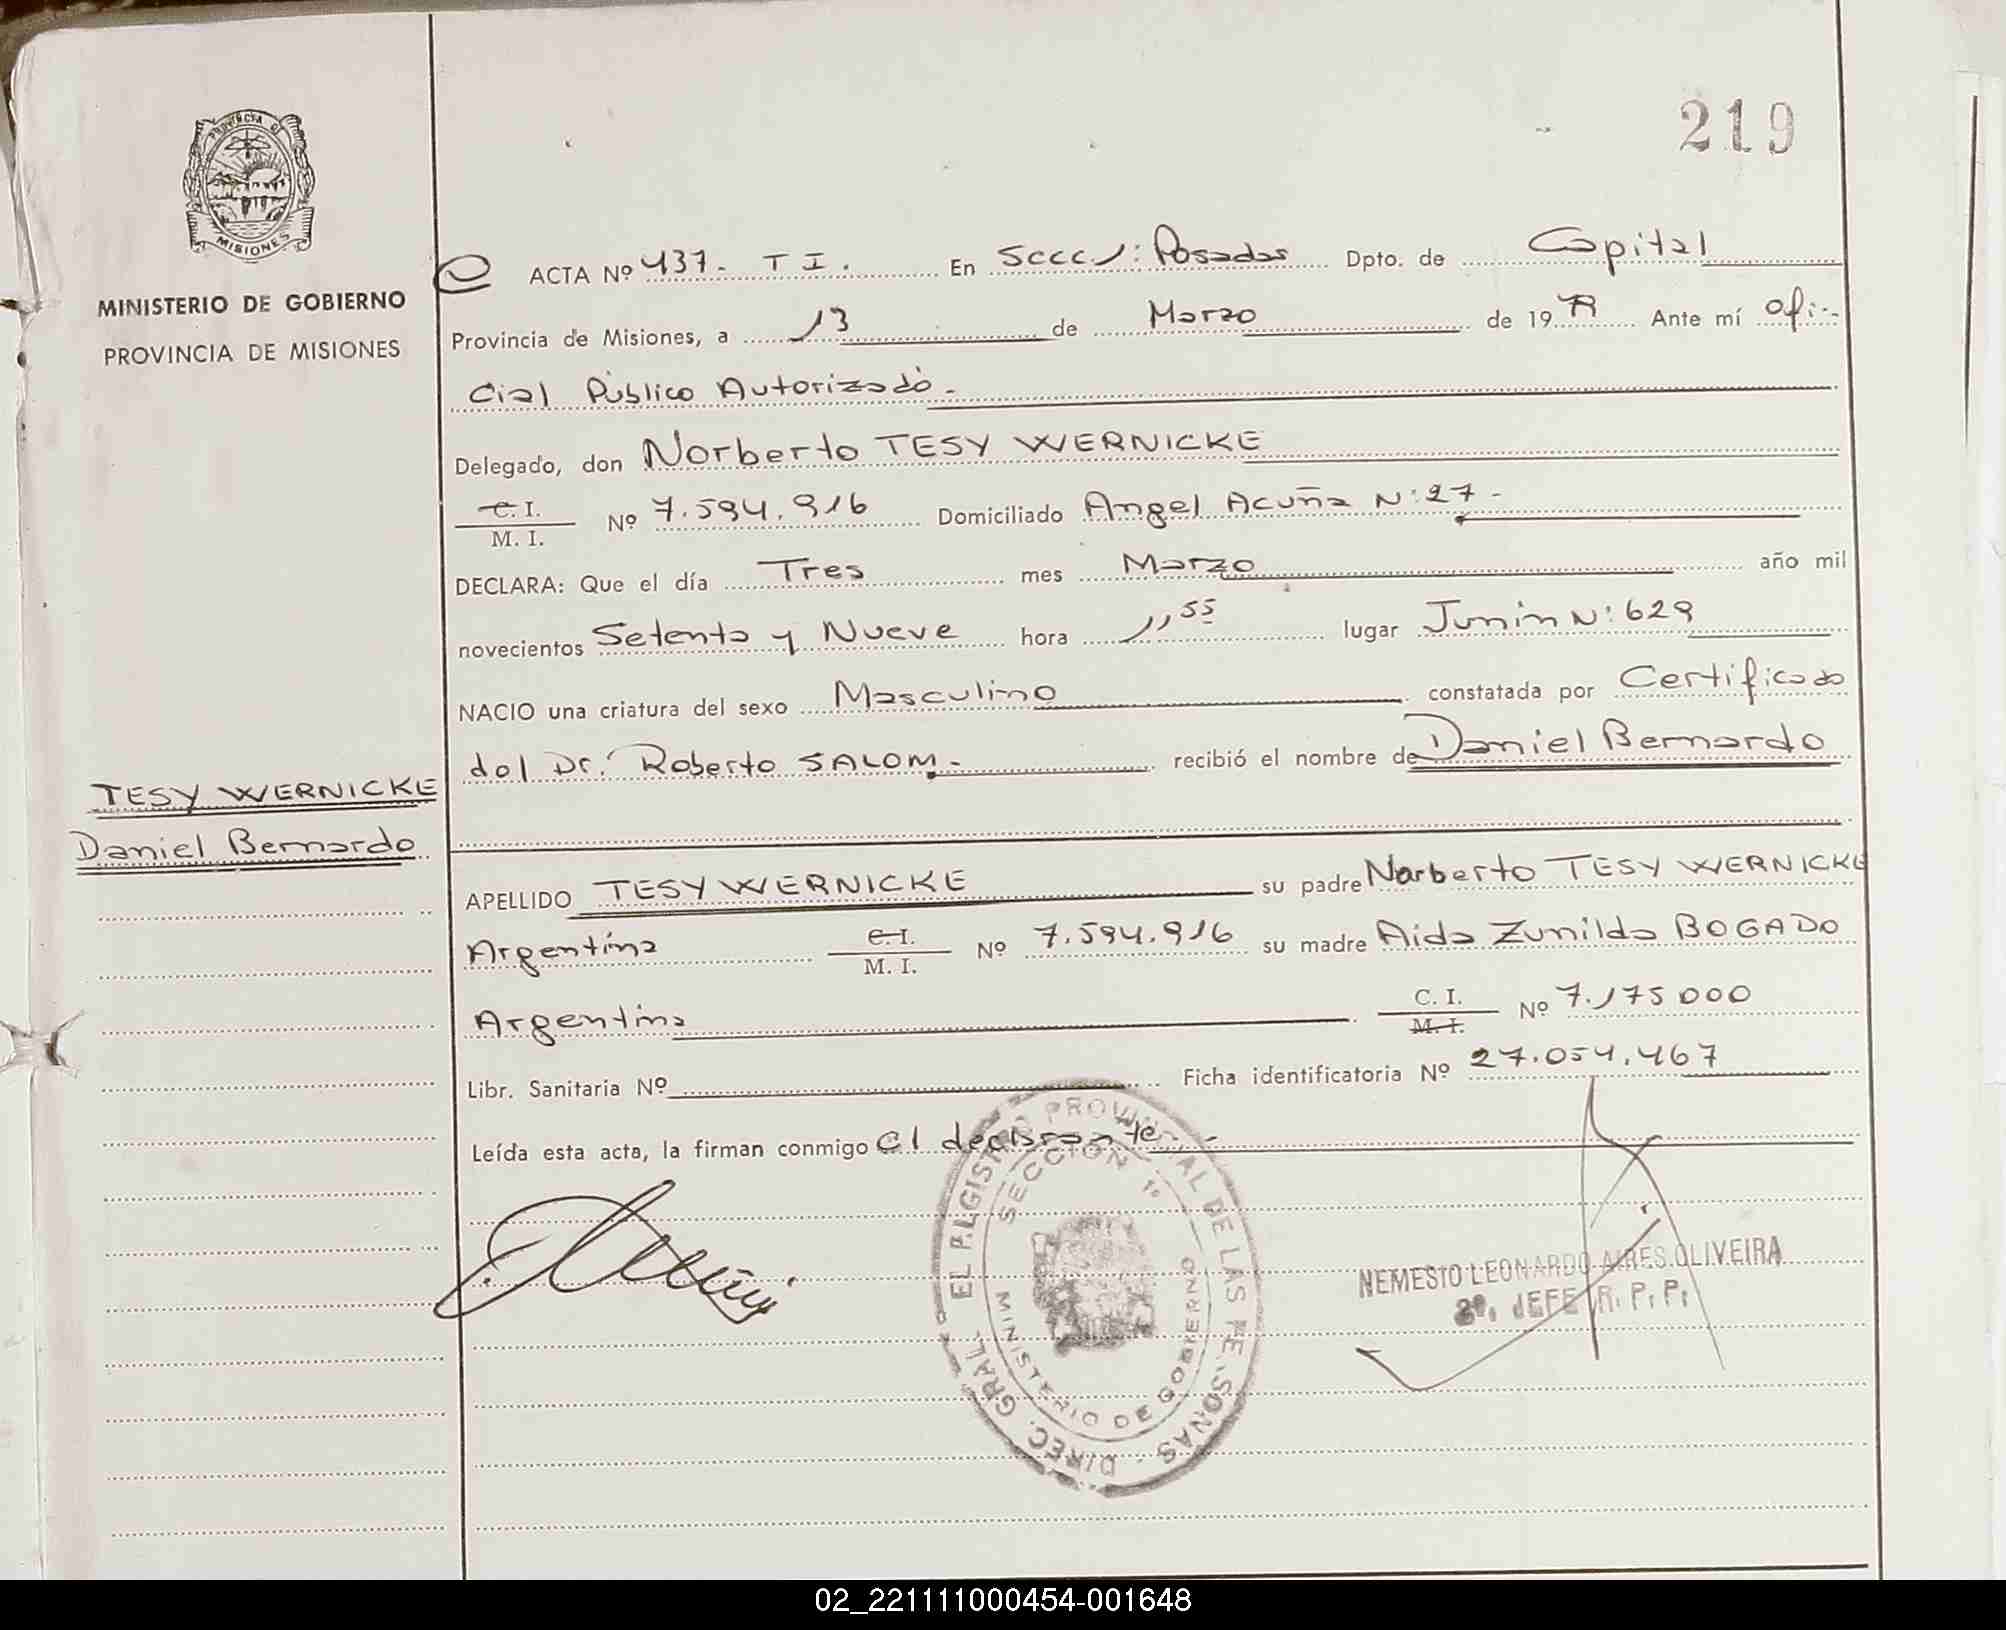 219
PROVINCIA DE
MISIONES
MINISTERIO DE GOBIERNO
PROVINCIA DE MISIONES
ACTA Nº 437. T I. En Secc 1: Posadas Dpto. de Capital
Provincia de Misiones, a 13 de Marzo de 19 79 Ante mí Ofi-
cial Público Autorizado.
Delegado, don Norberto TESY WERNICKE
C. I. / M. I. Nº 7.594.916 Domiciliado Angel Acuña Nº 27-
DECLARA: Que el día Tres mes Marzo año mil
novecientos Setenta y Nueve hora 11,55 lugar Junin Nº 629
NACIO una criatura del sexo Masculino constatada por Certificado
del Dr. Roberto SALOM.- recibió el nombre de Daniel Bernardo
TESY WERNICKE
Daniel Bernardo
APELLIDO TESY WERNICKE su padre Norberto TESY WERNICKE
Argentina C. I. / M. I. Nº 7.594.916 su madre Aida Zunilda BOGADO
Argentina C. I. / M. I. Nº 7.175000
Libr. Sanitaria Nº Ficha identificatoria Nº 27.054.467
Leída esta acta, la firman conmigo el declarante.-
DIREC. GRAL. DEL REGISTRO PROVINCIAL DE LAS PERSONAS
SECCION 1º
MINISTERIO DE GOBIERNO
NEMESIO LEONARDO AIRES OLIVEIRA
2º. JEFE R. P. P.
02_221111000454-001648